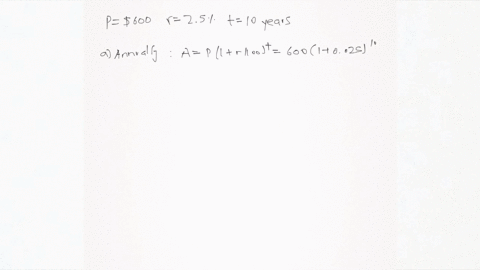 P = $600 r = 2.5% t = 10 years
a) Annually : A = P(1+r/100)^t = 600(1+0.025)^10